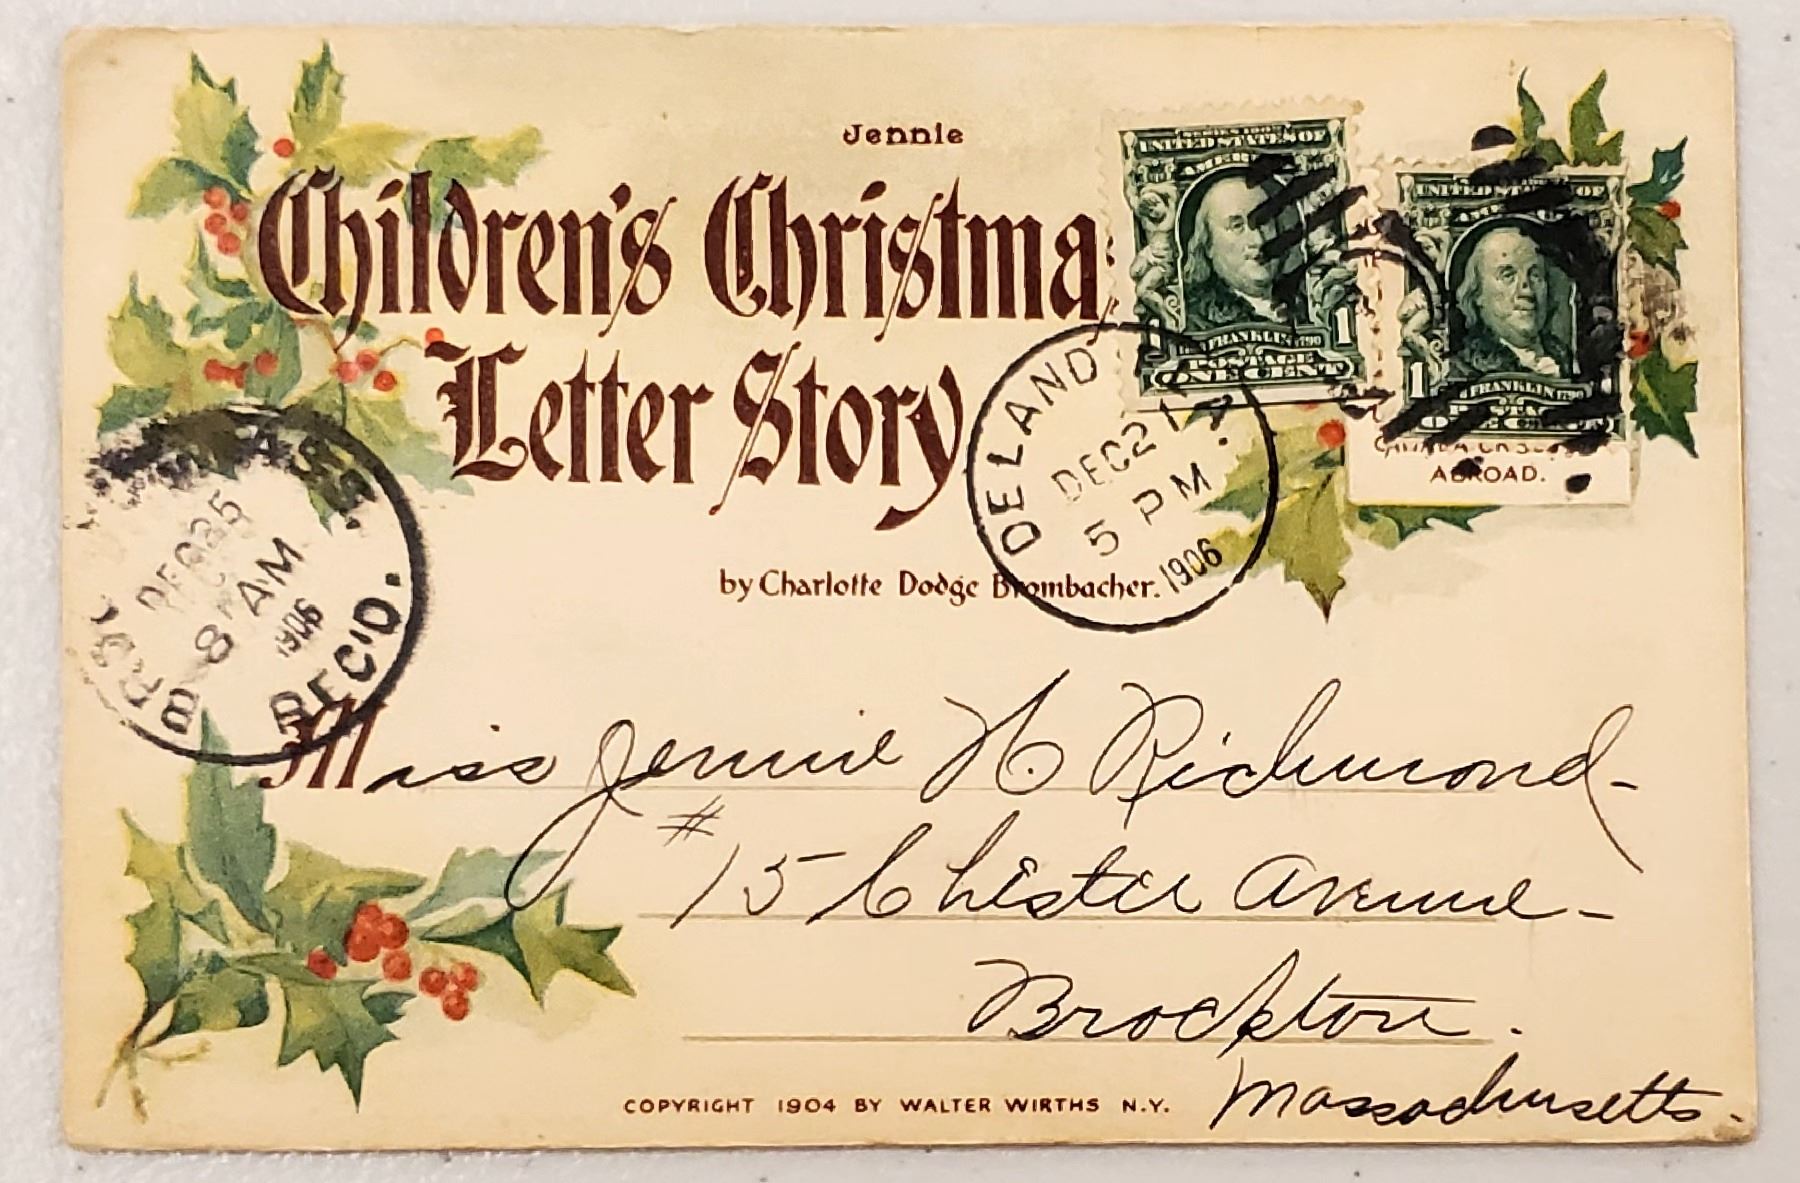 Jennie
Children's Christma
Letter Story
by Charlotte Dodge Brombacher.
UNITED STATES OF
AMERICA
1 1
FRANKLIN 1790
POSTAGE
ONE CENT
UNITED STATES OF
AMERICA
1
FRANKLIN 1790
POSTAGE
ONE CENT
ABROAD.
DELAND
DEC 21
5 PM
1906
MASS.
DEC 25
8 AM
1906
REC'D.
Miss Jennie H. Richmond-
# 15 Chester Avenue-
Brockton.
Massachusetts.
COPYRIGHT 1904 BY WALTER WIRTHS N.Y.